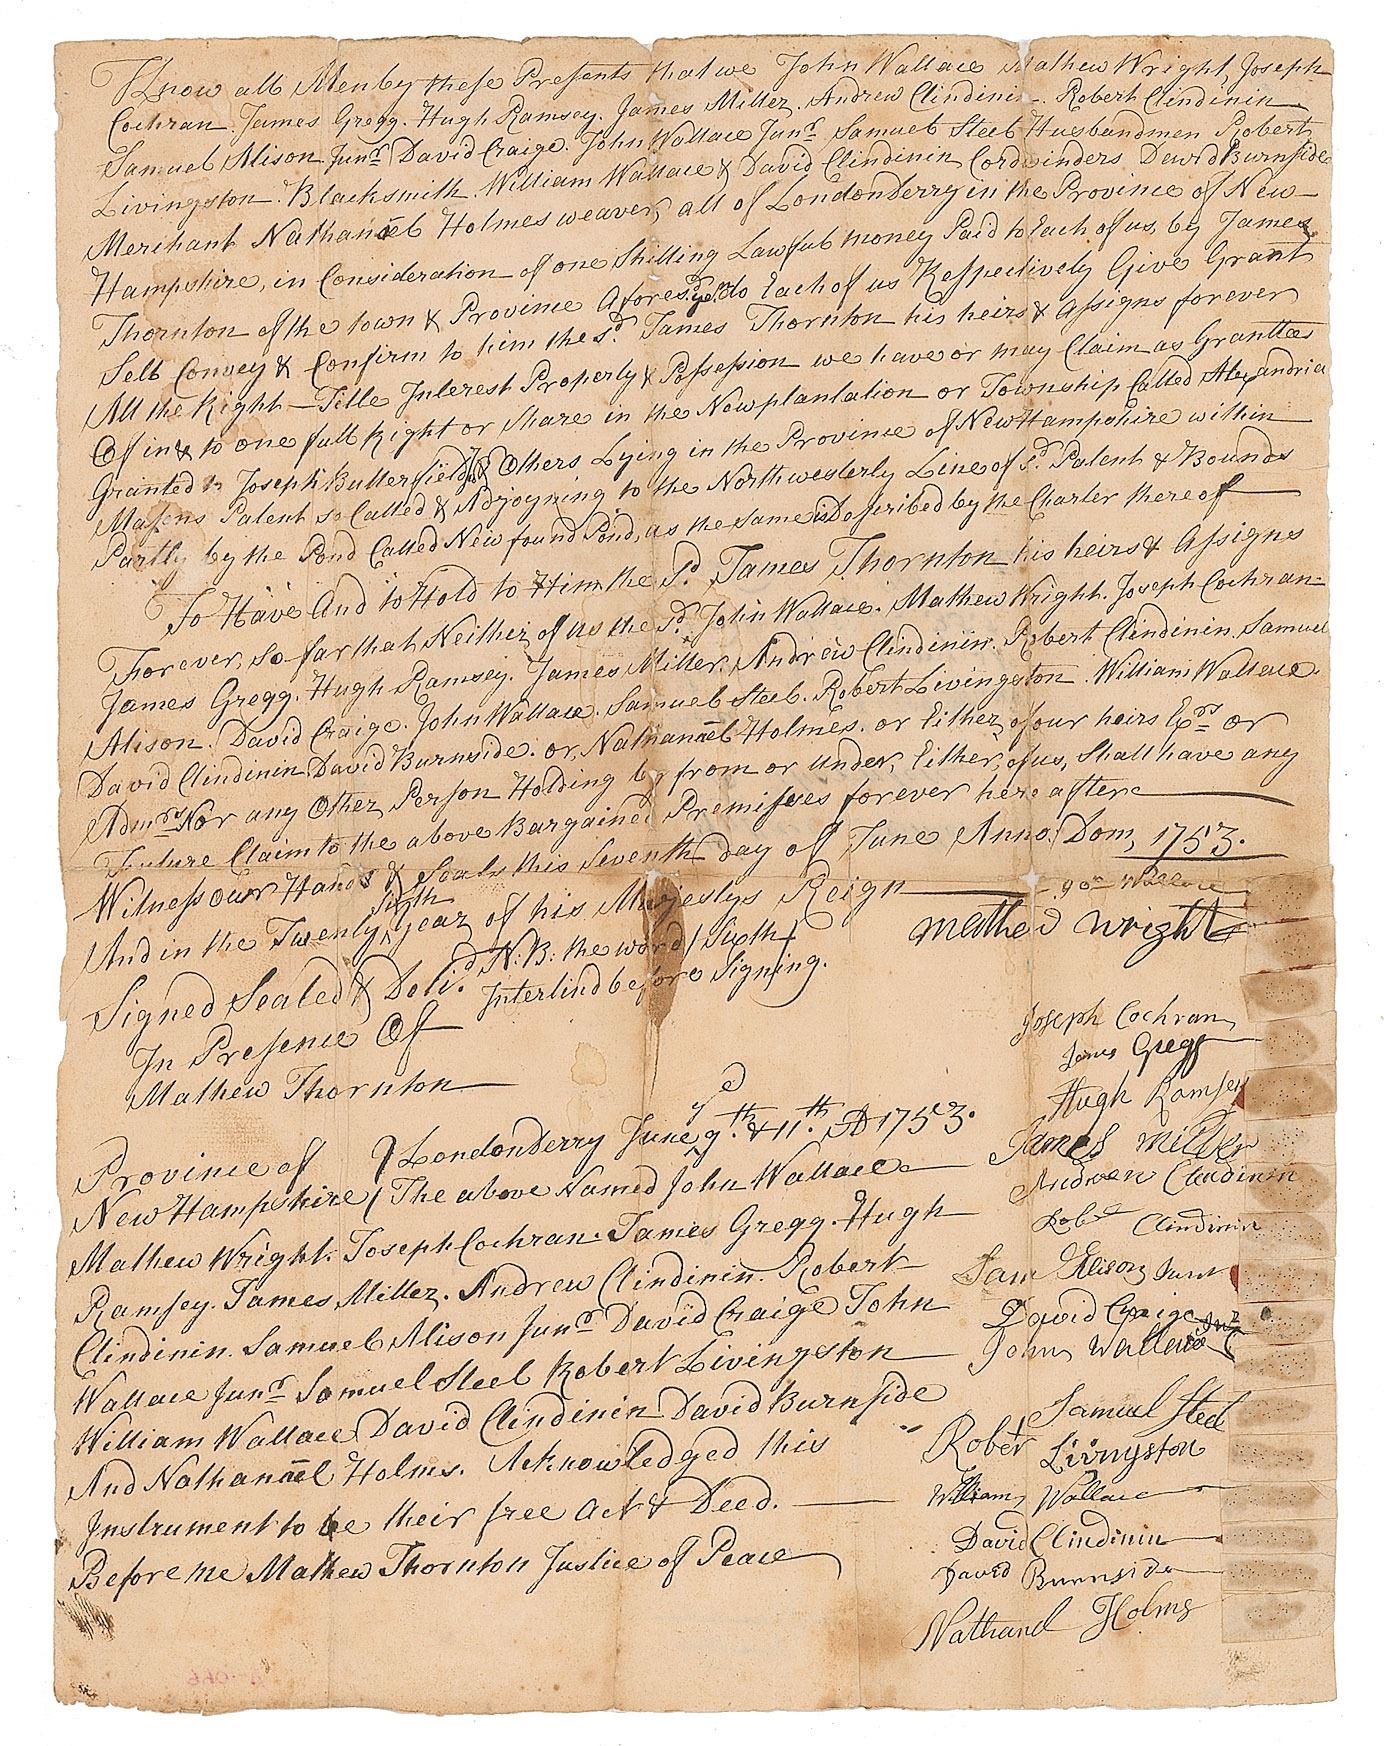 Know all Men by these Presents that we John Wallace Mathew Wright, Joseph
Cochran. James Gregg. Hugh Ramsey. James Miller. Andrew Clindinin. Robert Clindinin
Samuel Alison Junr David Craige. John Wallace Junr Samuel Steel Husbandmen Robert
Livingston. Blacksmith. William Wallace & David Clindinin Cordwinders David Burnside
Merchant Nathanael Holmes weaver, all of Londonderry in the Province of New
Hampshire, in Consideration of one Shilling Lawful money Paid to Each of us by James
Thornton of the town & Province aforesd do Each of us Respectively Give Grant
Sell Convey & Confirm to him the sd James Thornton his heirs & Assigns forever
All the Right Title Interest Property & Possession we have or may Claim as Grantees
Of in & to one full Right or Share in the New plantation or Township Called Alexandria
Granted to Joseph Butterfield & Others Lying in the Province of New Hampshire within
Masons Patent so Called & Adjoyning to the Northwesterly Line of sd Patent & Bounds
Partly by the Pond Called New found Pond, as the same is Described by the Charter there of
To Have And to Hold to Him the sd James Thornton his heirs & Assigns
Forever, so far that Neither of us the sd John Wallace. Mathew Wright. Joseph Cochran
James Gregg. Hugh Ramsey. James Miller. Andrew Clindinin. Robert Clindinin. Samuel
Alison. David Craige. John Wallace. Samuel Steel. Robert Livingston. William Wallace.
David Clindinin David Burnside. or, Nathanael Holmes. or Either of our heirs Exrs or
Admrs Nor any Other Person Holding by from or under, Either, of us, Shall have any
Future Claim to the above Bargained Premisses forever here after
Witness our Hands & Seals this Seventh day of June Anno: Dom, 1753.
And in the Twenty sixth Year of his Majestys Reign
Jon Wallace
Mathew Wright
N:B: the word / Sixth /
Interlind before Signing.
Signed Sealed & Delivd
In Presence Of
Mathew Thornton
Joseph Cochran
James Gregg
Hugh Ramsey
James Miller
Andrew Clindinin
Robt Clindinin
Sam Alison Junr
David Craige
John Wallace Jnr
Samuel Steel
Robert Livingston
William Wallace
David Clindinin
David Burnside
Nathanel Holms
Province of } Londonderry June ye 9th & 11th AD 1753.
New Hampshire } The above Named John Wallace
Mathew Wright. Joseph Cochran. James Gregg. Hugh
Ramsey. James, Miller. Andrew Clindinin. Robert
Clindinin. Samuel Alison Junr David Craige John
Wallace Junr Samuel Steel Robert Livingston
William Wallace David Clindinin David Burnside
And Nathanael Holms. Acknowledged this
Instrument to be their free act & Deed.
Before me Mathew Thornton Justice of Peace